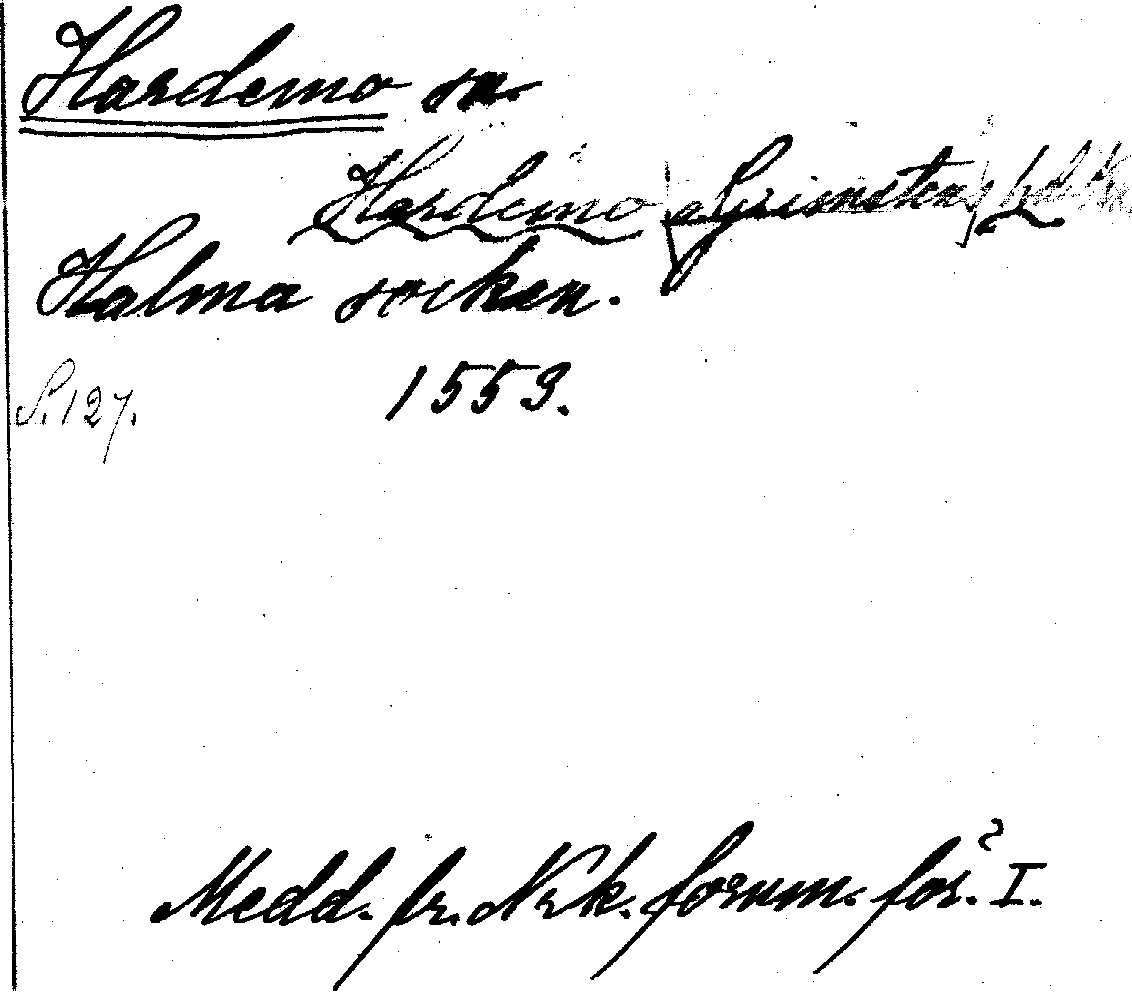 Hardemo sn.
Hardemo (Grimstens hd)
Halma socken.
S. 127. 1553.
Medd. fr. Nrk. fornm. för. I.